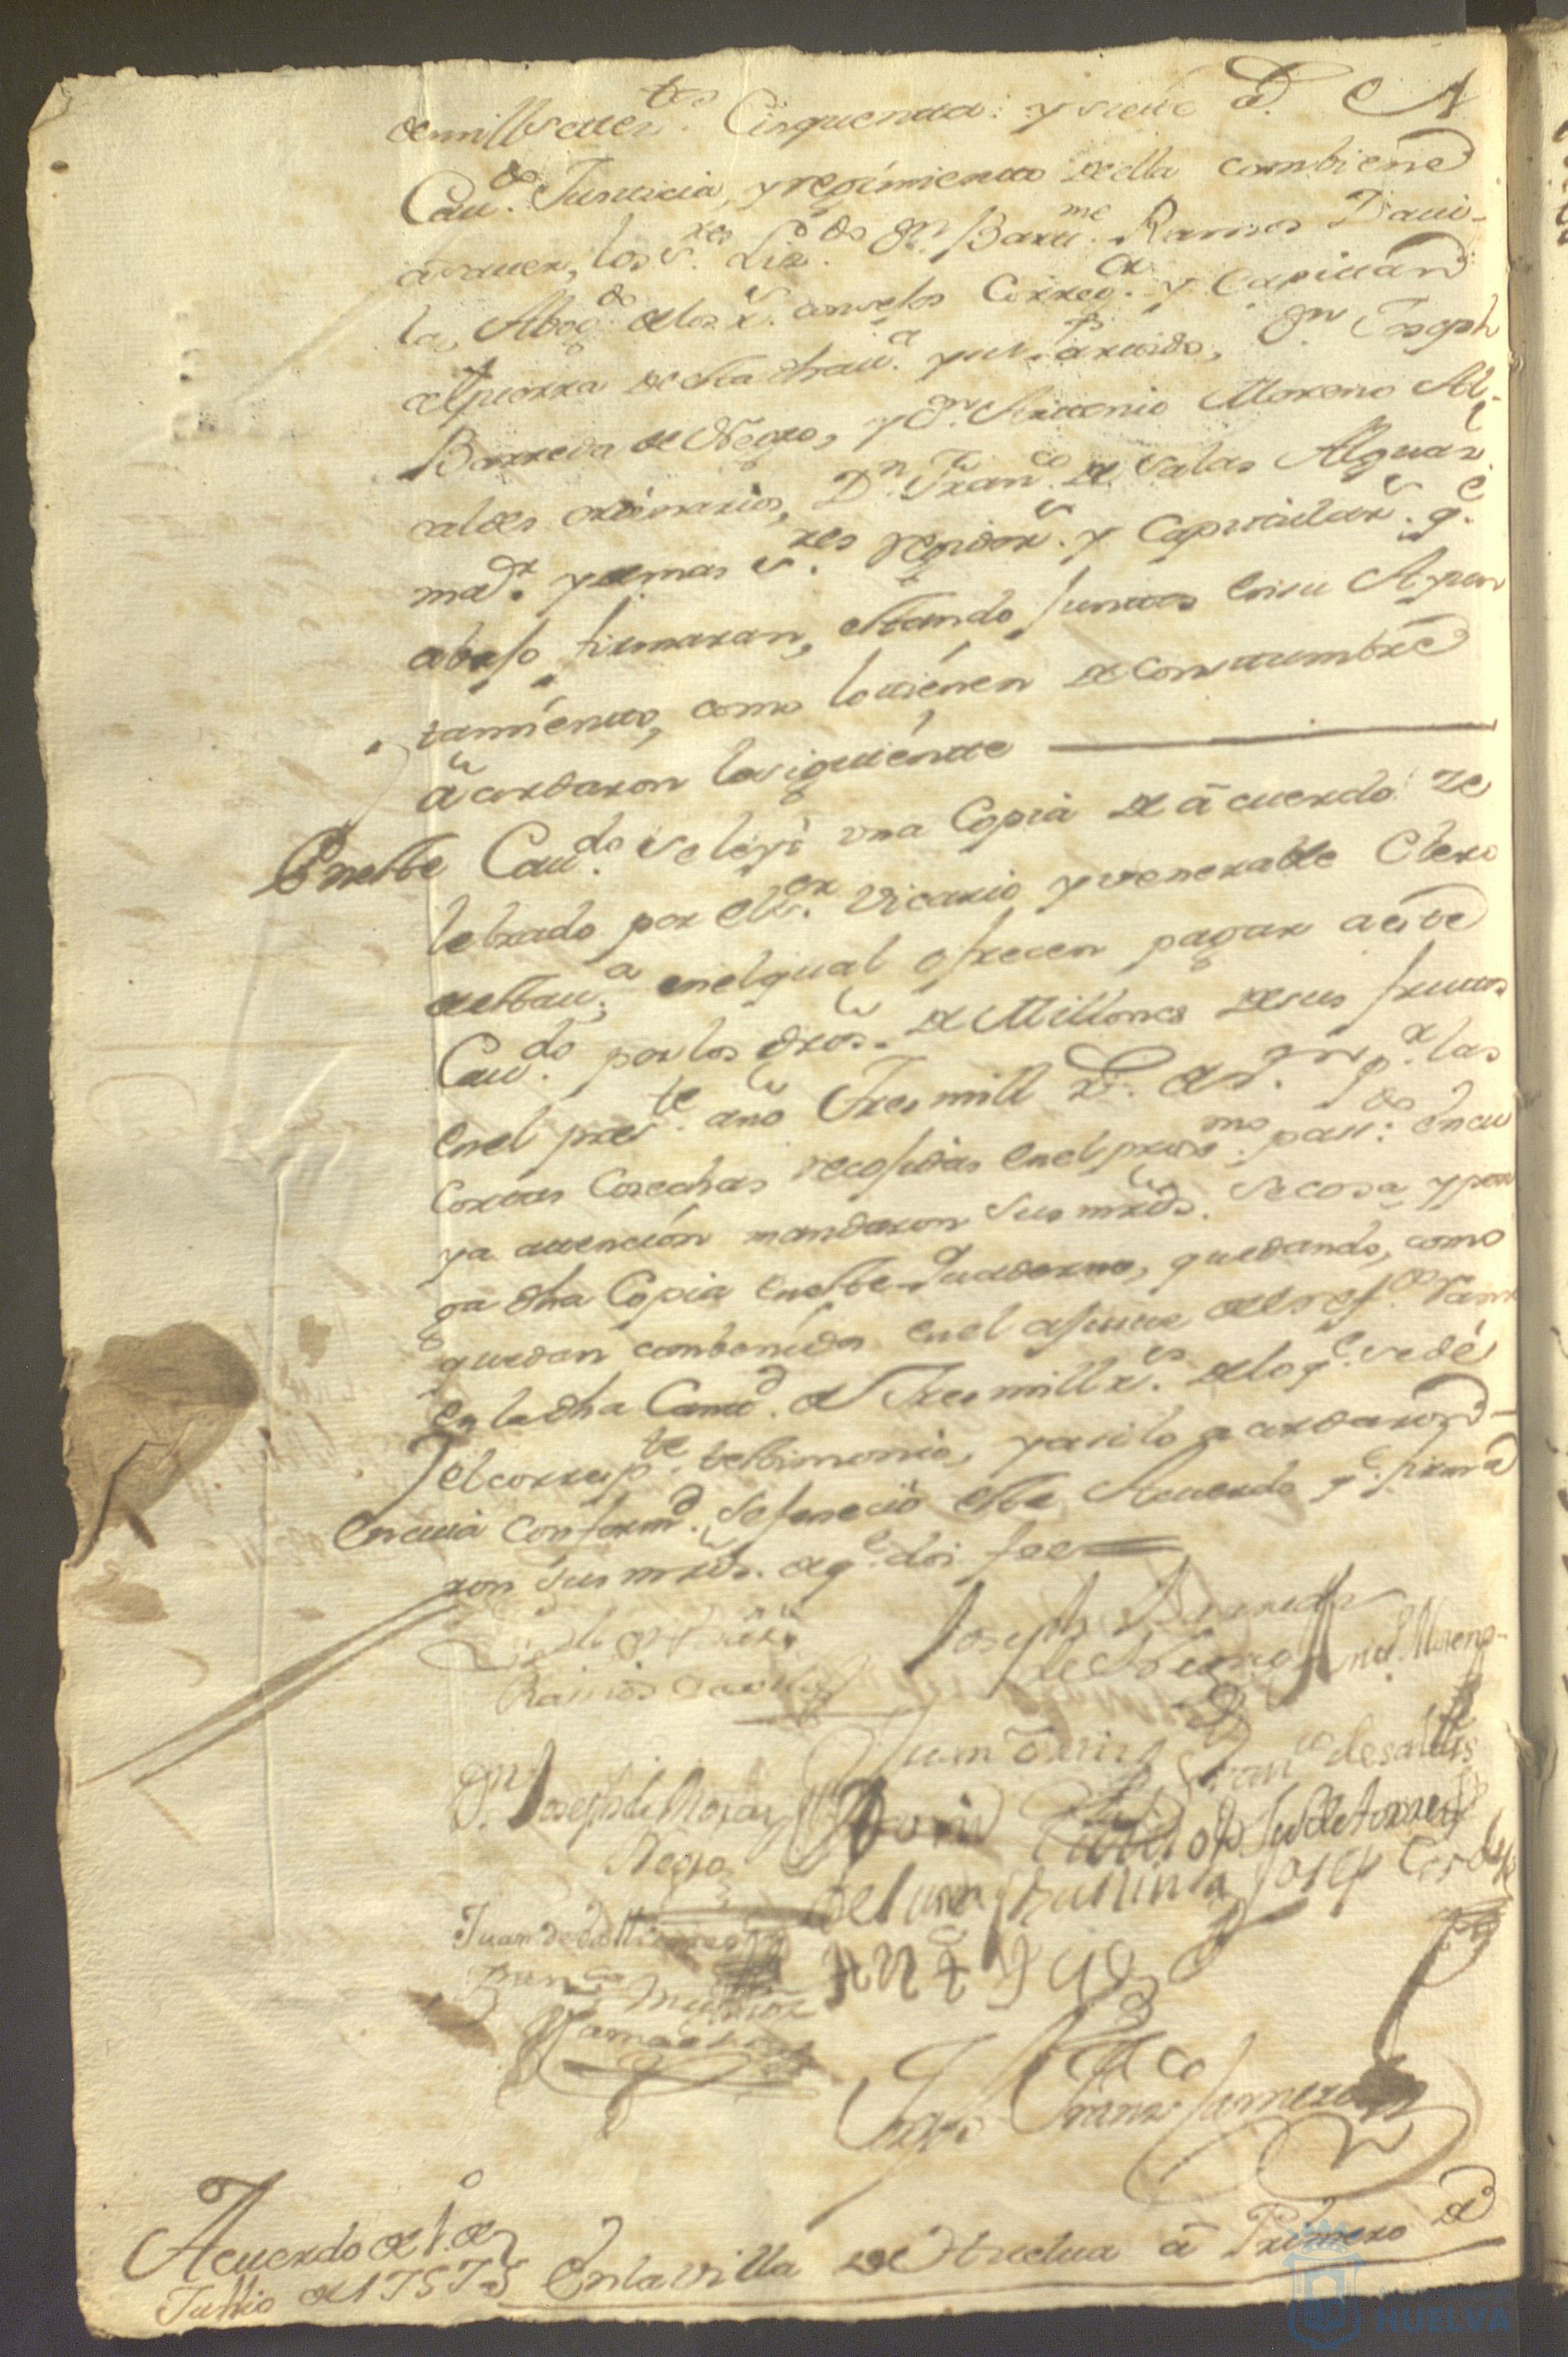 de mill setez.tos Cinquenta: y siete a.s el
Cau.do Justicia, y regimiento de ella combiene
a sauer, los s.res Liz.do dn. Bartt.me Ramos Daui-
la, Abog.do de los R.s consejos Correg.or y Capittan
a guerra de esta dha uilla y su partido, dn. Joseph
Barreda de Negro, y dn. Antonio Moreno Al-
caldes ordinarios, Dn. Fran.co de Salas Alguaz.l
ma.or y demas s.res regidor.s y Capitular.s q.e
abajo firmaran, estando juntos en su Ayun
tamiento, como lo tienen de constumbre
acordaron lo siguiente
En este Cau.do se leyó vna Copia de acuerdo ze
lebrado por el s.or Vicario y venerable Clero
de esta u.a en el qual ofrecen pagar a este
Cau.do por los dros. de Millones de sus frutos
en el pres.te año Tres mill r.s de v.on p.r las
cortas Cosechas recojidas en el prox.mo pas.do En cu
ya attencion mandaron sus mrds. se cosa y pon
ga dha Copia en este quaderno, quedando, como
quedan conbenidos en el ajuste del ref.do ramo
en la dha Cantd. de Tres mill r.s de lo q.e se dé
el corresp.te testimonio, y asi lo acordaron
En cuia conformd. se fenecio este Acuerdo q.e firma
ron sus mrds. de q.e doi fee
Ramos Dauila
Joseph Barreda
de Negro Antt.o Moreno
Fran.co de Salas
Dn. Joseph de
Negro
Josep
Juan de
Fran.co
Camacho
Acuerdo de 1.o de
Jullio de 1757 En la villa de Huelua a Primero de
HUELVA